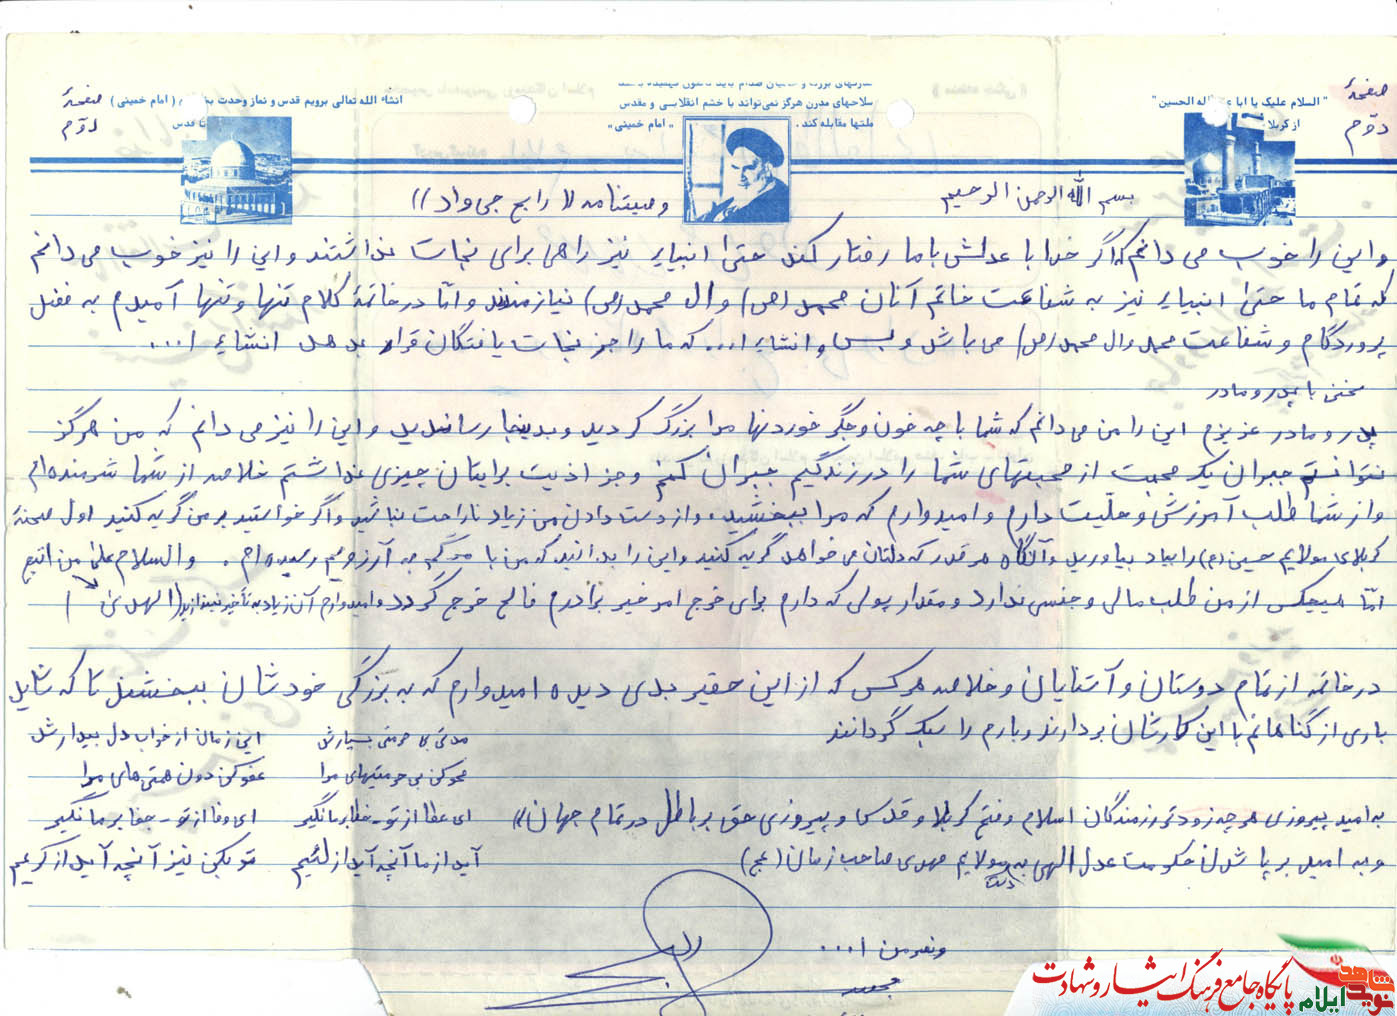 صفحهٔ دوّم
" السلام علیک یا ابا عبدالله الحسین "
از کربلا
سلاحهای مدرن هرگز نمی‌تواند با خشم انقلابی و مقدس
ملتها مقابله کند . « امام خمینی »
انشاء الله تعالی برویم قدس و نماز وحدت ( امام خمینی )
تا قدس
صفحهٔ دوّم
بسم الله الرحمن الرحیم
وصیتنامه
و این را خوب می دانم که اگر خدا با عدلش با ما رفتار کند حتیٰ انبیاء نیز راهی برای نجات نداشتند و این را نیز خوب می دانم
که تمام ما حتیٰ انبیاء نیز به شفاعت خاتم آنان محمد (ص) و ال محمد (ص) نیازمندند و امّا در خاتمهٔ کلام تنها و تنها امیدم به فضل
پروردگارم و شفاعت محمد و ال محمد (ص) می باشد و بس و انشاء ا... که ما را جز نجات یافتگان قرار بدهد انشاء ا...
سخنی با پدر و مادر
پدر و مادر عزیزم این را من می دانم که شما با چه خون و جگر خوردنها مرا بزرگ کردید و بدینجا رساندید و این را نیز می دانم که من هرگز
نتوانستم جبران یک محبت از محبتهای شما را در زندگیم جبران کنم و جز اذیت برایتان چیزی نداشتم خلاصه از شما شرمنده ام
و از شما طلب آمرزش و حلّیت دارم و امیدوارم که مرا ببخشید. و از دست دادن من زیاد ناراحت نباشید و اگر خواستید بر من گریه کنید اول صحنهٔ
کربلای مولایم حسین (ع) را بیاد بیاورید و آنگاه هر قدر که دلتان می خواهد گریه کنید و این را بدانید که من با مرگم به آرزویم رسیده ام . والسلام علیٰ من اتبع
الهدیٰ
امّا هیچکس از من طلب مالی و جنسی ندارد و مقدار پولی که دارم برای خرج امر خیر برادرم فالح خرج گردد و امیدوارم آن زیاد به تأخیر نیندازید
در خاتمه از تمام دوستان و آشنایان و خلاصه هرکس که از این حقیر بدی دیده امیدوارم که به بزرگی خودشان ببخشند تا که شاید
باری از گناهانم با این کارشان بردارند و بارم را سبک گردانند
مدتی بی حرمتی بسیارش این زمان از خواب دل بیدارش
محو کن بی حرمتیهای مرا عفو کن دون همتی های مرا
به امید پیروزی هرچه زودتر رزمندگان اسلام و فتح کربلا و قدس و پیروزی حق بر باطل در تمام جهان
ای عطا از تو - خطا بر ما نگیر ای وفا از تو - جفا بر ما نگیر
و به امید بر پا شدن حکومت عدل الهی به دست مولایم مهدی صاحب زمان (عج)
آید از ما آنچه آید از لئیم تو بکن نیز آنچه آید از کریم
و نصر من ا...
پایگاه جامع فرهنگ ایثار و شهادت
نوید شاهد ایلام